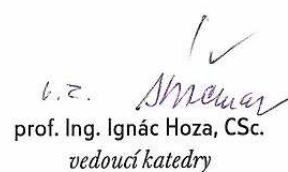 v. z.
prof. Ing. Ignác Hoza, CSc.
vedoucí katedry